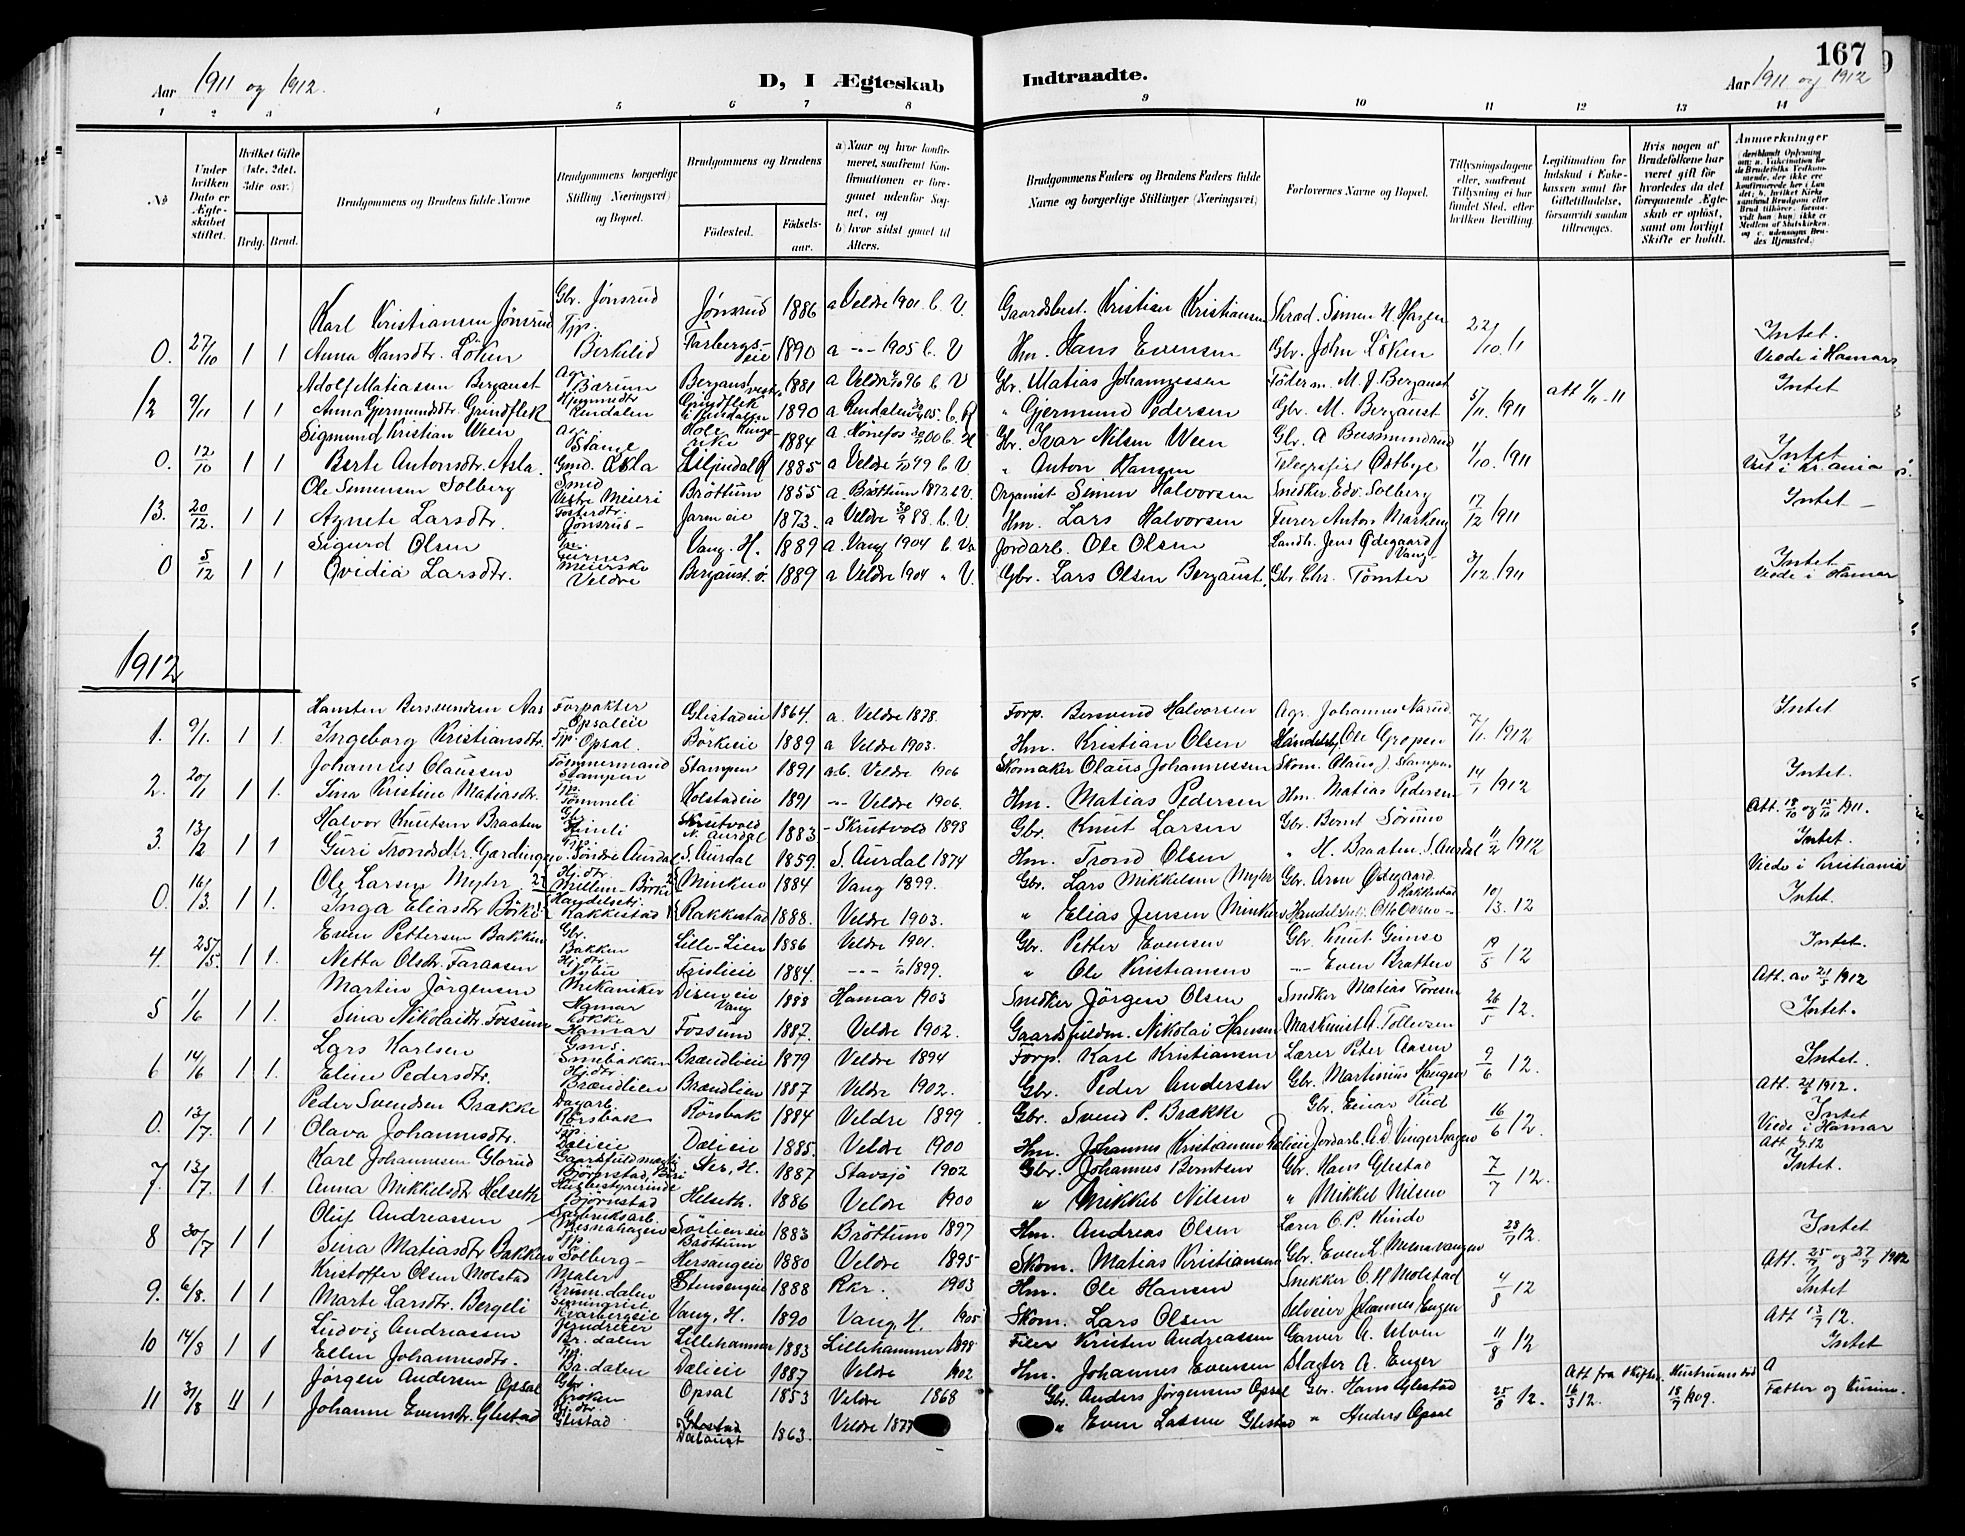 167
Aar 1911 og 1912. D, I Ægteskab Indtraadte. Aar 1911 og 1912
1 2 3 4 5 6 7 8 9 10 11 12 13 14
No
Under hvilken Dato er Ægteskabet stiftet.
Hvilket Gifte (1ste, 2det, 3die osv.)
Brdg. Brud.
Brudgommens og Brudens fulde Navne
Brudgommens borgerlige Stilling (Næringsvei) og Bopæl.
Brudgommens og Brudens
Fødested. Fødselsaar.
a) Naar og hvor konfirmeret, saafremt Konfirmationen er foregaaet udenfor Sognet, og
b) hvor sidst gaaet til Alters.
Brudgommens Faders og Brudens Faders fulde Navne og borgerlige Stillinger (Næringsvei)
Forlovernes Navne og Bopæl.
Tillysningsdagene eller, saafremt Tillysning ei har fundet Sted, efter hvilken Bevilling.
Legitimation for Indskud i Enkekassen samt for Giftetilladelse, forsaavidt saadan tiltrænges.
Hvis nogen af Brudefolkene har været gift før hvorledes da det foregaaende Ægteskab er opløst, samt om lovligt Skifte er holdt.
Anmerkninger
Karl Kristiansen Jönsrud Gbr. Jönsrud Jönsrud 1886 a Veldre 1901. b. V. Gaardsbest. Kristian Kristiansen Skræd. Simen H. Hagen 22/10. 11 Intet.
0. 27/10 1 1 Anna Hansdtr. Löken Tjp. Berkelid Farbergseie 1890 a -"- 1905 b. V Hm. Hans Evensen Gbr. John Löken Viede i Hamar
Adolf Matiasen Bergaust Bærum Bergaust vestre 1881 a Veldre 96 b. V Gbr. Matias Johannessen Föderm. M. J. Bergaust 5/11. 1911 att 1/11-11 Intet
12 9/11 1 1 Anna Gjermundsdtr. Grindflek Hjemmedtr Rendalen Grindflek i Rendalen 1890 a Rendalen 05. b. R " Gjermund Pedersen Gbr. M. Bergaust
Sigmund Kristian Ween Hole Ringerike 1884 a Hönefos 00 b. H Gbr. Ivar Nilsen Ween Gbr. A Busmundrud 1/10. 1911 Intet
0. 12/10 1 1 Berte Antonsdtr. Asla. Gmd. Asla 1885 a Veldre 1/10 99 b. V. " Anton Hansen Telegrafist Østbye Viet i Kr.ania
Ole Simensen Solberg Smed Vestre Meieri Bröttum 1855 a. Bröttum 1872 b. V. Organist Simen Halvorsen Snedker Edv. Solberg 17/12 1911 Intet -
13. 20/12. 1 1 Agnete Larsdtr. Fosterdtr. Jönsrud - 1873. a Veldre 30/9 88. b. V. Hm. Lars Halvorsen Furer Anton Markeng
Sigurd Olsen Furnes Vang. H. 1889 a. Vang 1904 b. Va Jordarb. Ole Olsen Landh. Jens Ødegaard Vang - 3/12. 1911 Intet
0 5/12 1 1 Ovedia Larsdtr. Meierske Veldre Bergaust. ö. 1889 a Veldre 1904 " V. Gbr. Lars Olsen Bergaust. Gbr. Chr. Tömter Viede i Hamar
1912
Hansten Bersvendsen Aas Forpakter Opsaleie Glistadeie 1864. a. Veldre 1878. Forp. Bersvend Halvorsen Agr. Johannes Narud 7/1 1912 Intet
1. 9/1. 1 1. Ingeborg Kristiansdtr. Tjp. Opsal. Börkeeie 1889 a Veldre 1903. Hm. Kristian Olsen Handelsb. Ole Gropen
Johannes Olaussen Tömmermand Stampen Stampen 1891 a.b. Veldre 1906 Skomaker Olaus Johannessen Skom. Olaus J. Stampen 14/1 1912 Intet.
2. 20/1 1 1. Sina Kristine Matiasdtr. Tjp. Tömmeli Holstadeie 1891 -"- Veldre 1906. Hm. Matias Pedersen Hm. Matias Pedersen
Halvor Knutsen Braaten Gbr. Heimli Skrutvold N. Aurdal 1883 - Skrutvold 1898 Gbr. Knut Larsen Gbr. Bernt Sörum 11/2 1912 Att. 18/10 og 15/10 1911.
3. 13/2 1 1 Guri Trondsdtr. Gardingen Söndre Aurdal S. Aurdal 1859. S. Aurdal 1874 Hm. Trond Olsen " H. Braaten. S. Aurdal Intet.
Ole Larsen Myhr 1884 Vang 1899. Gbr. Lars Mikkelsen Myhr Gbr. Arne Ødegaard 10/3. 12 Viede i Kristiania
0. 16/3. 1 1. Inga Eliasdtr. Börke Rakkestad Rakkestad 1888. Veldre 1903. " Elias Jensen Intet.
Even Pettersen Bakken Gbr. Bakken Lille-Lien 1886 Veldre 1901. Gbr. Petter Evensen Gbr. Knut Gimse 19/5 12 Intet.
4. 25/5. 1 1. Netta Olsdtr. Faraasen Hjdtr. Nybu 1884. -"- 1/10 1899. " Ole Kristiansen -"- Even Bratten
Martin Jörgensen Mekaniker Hamar Disen eie Vang 1888 Hamar 1903 Snedker Jörgen Olsen Snedker Matias Toresen 26/5 12. Att. av 21/5 1912
5 1/6 1 1. Sina Nikolaidtr. Fossum Kokke Hamar Fossum 1887. Veldre 1902. Gaardsfuldm. Nikolai Hansen Maskinist A. Tollersen Intet.
Lars Karlsen Smebakken Brændlieie 1879 Veldre 1894 Forp. Karl Kristiansen Lærer Peter Aasen 9/6 12. Intet.
6 14/6 1 1. Eline Pedersdtr. Hjdtr. Brændlien Brændlien 1887 Veldre 1902. Gbr. Peder Andersen Gbr. Martinius Haugen Att. 1912.
Peder Svendsen Brække Dagarb. Rörsbak Rörsbak 1884 Veldre 1899 Gbr. Svend P. Brække Gbr. Einar Rud 16/6 12. Intet
0. 13/7 1 1 Olava Johannesdtr. Tjp. Dælieie Dælieie 1885. Veldre 1900 Hm. Johannes Kristiansen Dælieie Jordarb. A. D. Vingerhagen Viede i Hamar
Karl Johannesen Glorud Gaardsfuldmægtig Björnstad 1887 Stavsjö 1902 Gbr. Johannes Berntsen Gbr. Hans Glestad 7/7 12. Intet.
7. 13/7. 1 1. Anna Mikkelsdtr Helseth Husbestyrerinde Björnstad Helseth. 1886 Veldre 1900 " Mikkel Nilsen " Mikkel Nilsen
Oluf Andreassen Fabriksarb. Mesnahagen Sörlien eie Bröttum 1883 Bröttum 1897 Hm. Andreas Olsen Lærer O. P. Kinde 28/7 12. Intet
8 30/7 1 1 Sina Matiasdtr Bakken Tjp. Solberg - Hersaugeie 1880 Veldre 1895 Skom. Matias Kristiansen Gbr. Even L. Att. 25/7 og 27/7 1912
Kristoffer Olsen Molstad Maler Brum.dalen Stensengeie 1888 Rkr. 1903 Hm. Ole Hansen Snekker O. H Molstad 4/8 12 Intet
9. 6/8. 1 1 Marte Larsdtr. Bergeli Kvarbergeie Vang, H. 1890 Vang, H. 1905 Skom. Lars Olsen Selveier Johannes Enger Att 13/7 12.
Ludvig Andreassen Br. dalen Lillehammer 1883 Lillehammer 1898 Filer Kristen Andreassen Garver A. Ulven 11/8 12 Intet
10 14/8 1 1 Ellen Johannesdtr. Tjp. Br. dalen Dælieie 1887 Veldre 1902 Hm. Johannes Evensen Slagter A. Enger
Jörgen Andersen Opsal Gbr. Opsal 1853 Veldre 1868 Gbr. Anders Jörgensen Opsal Gbr. Hans Glestad 25/8 12. Att fra Skifter. 16/3 12. Hustruens död 18/7 1909. Fætter og Kusine.
11 31/8 II 1 Johanne Evensdtr. Glestad Hjdtr. Glestad 1863. Veldre 1877 " Even Larsen Glestad " Anders Opsal